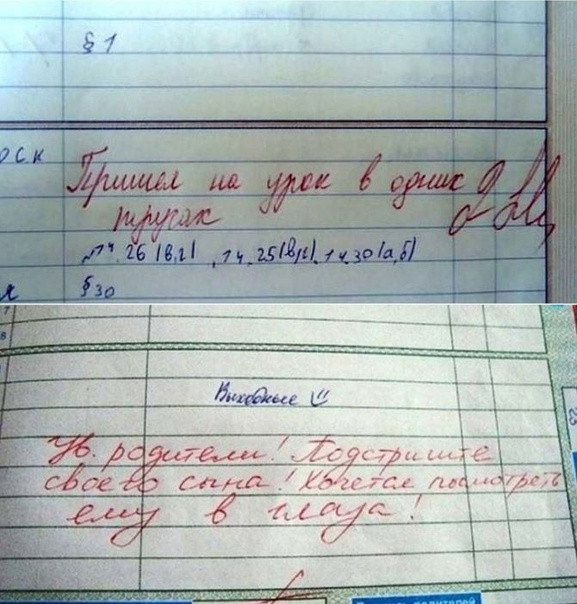 § 1
оск
Пришел на урок в одних 2
трусах
№14.26(в,г), 14.25(в,г), 14.30(а,б)
§ 30
Выходные
Ув. родители! Подстригите
своего сына! Хочется посмотреть
ему в глаза!
родителей